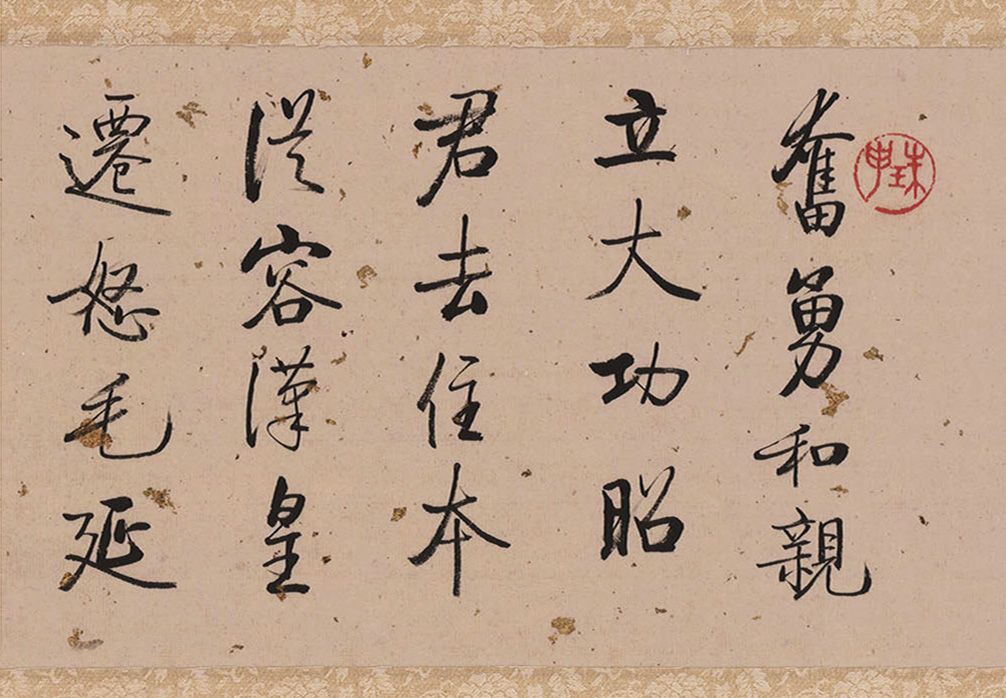 奮勇和親
立大功昭
君去住本
從容漢皇
遷怒毛延